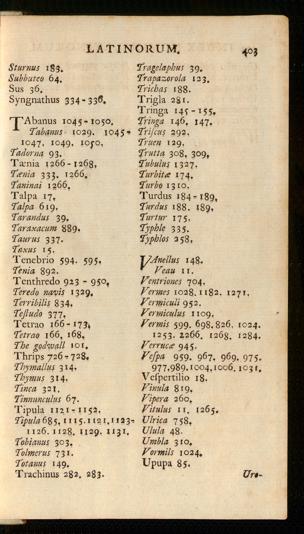 LATINORUM.
403
Sturnus 183.
Subbuteo 64.
Sus 36.
Syngnathus 334-336.
TAbanus 1045-1050.
Tabanus 1029. 1045-
1047, 1049, 1050.
Tadorna 93.
Tænia 1266-1268,
Tænia 333, 1266,
Taninai 1266.
Talpa 17,
Talpa 619.
Tarandus 39.
Taraxacum 889.
Taurus 337.
Taxus 15.
Tenebrio 594. 595,
Tenia 892.
Tenthredo 923-950,
Teredo navis 1329,
Terribilis 834,
Testudo 377,
Tetrao 166-173,
Tetrao 166, 168,
The godwall 101,
Thrips 726-728,
Thymallus 314.
Thymus 314.
Tinea 321.
Tinnunculus 67.
Tipula 1121-1152.
Tipula 685, 1115. 1121, 1123-
1126. 1128. 1129. 1131.
Tobianus 303,
Tolmerus 731.
Totanus 149.
Trachinus 282, 283.
Tragelaphus 39.
Trapazorola 123.
Trichas 188.
Trigla 281.
Tringa 145-155,
Tringa 146, 147,
Triscus 292.
Truen 129.
Trutta 308, 309,
Tubulus 1327.
Turbitæ 174.
Turbo 1310.
Turdus 184-189,
Turdus 188. 189.
Turtur 175.
Typhle 335.
Typhlos 258,
VAnellus 148.
Veau 11.
Ventriones 704.
Vermes 1028, 1182. 1271.
Vermiculi 952.
Vermiculus 1109.
Vermis 599, 698, 826. 1024.
1253. 2266. 1268, 1284.
Verrucæ 945.
Vespa 959. 967, 969, 975.
977, 989, 1004, 1006, 1031,
Vespertilio 18.
Vinula 819,
Vipera 260,
Vitulus 11, 1265.
Ulrica 758,
Ulula 48.
Umbla 310,
Vormils 1024,
Upupa 85.
Uro-